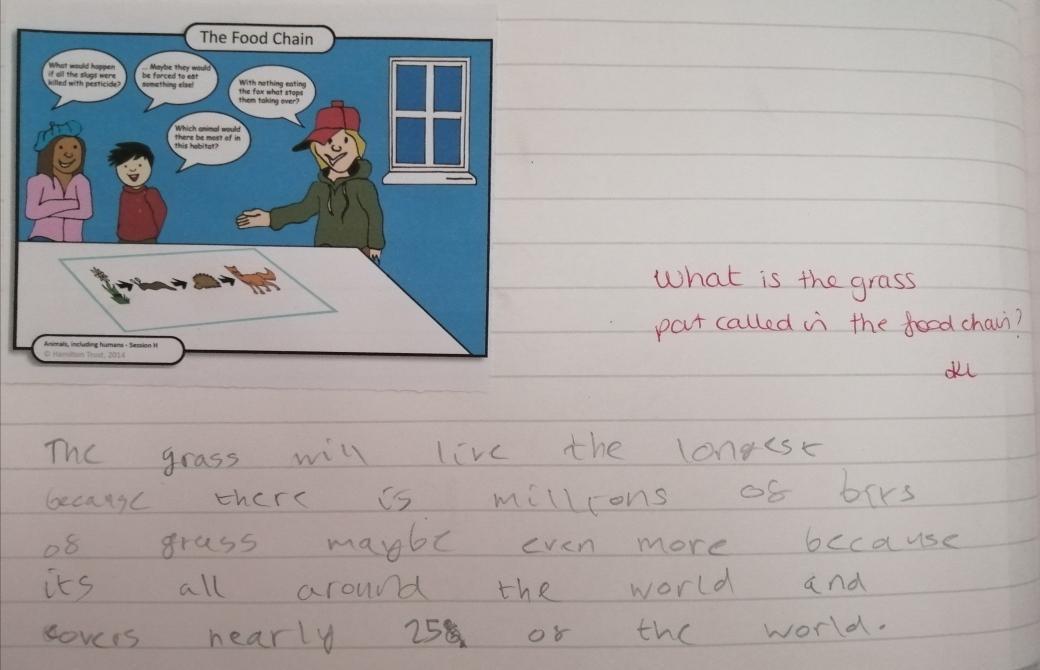 The Food Chain
What would happen
if all the slugs were
killed with pesticide?
... Maybe they would
be forced to eat
something else!
With nothing eating
the fox what stops
them taking over?
Which animal would
there be most of in
this habitat?
Animals, including humans - Session H
© Hamilton Trust, 2014
What is the grass
part called in the food chain?
The grass will live the longest
because there is millions of bits
of grass maybe even more because
its all around the world and
covers nearly 25% of the world.